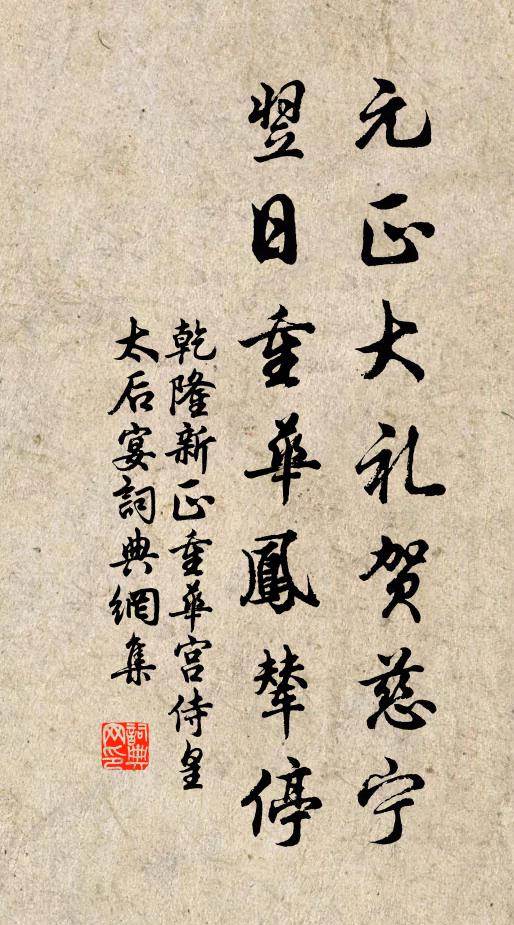 元正大礼贺慈宁
翌日重華鳳輦停
乾隆新正重華宫侍皇
太后宴詞典網集
詞典网印